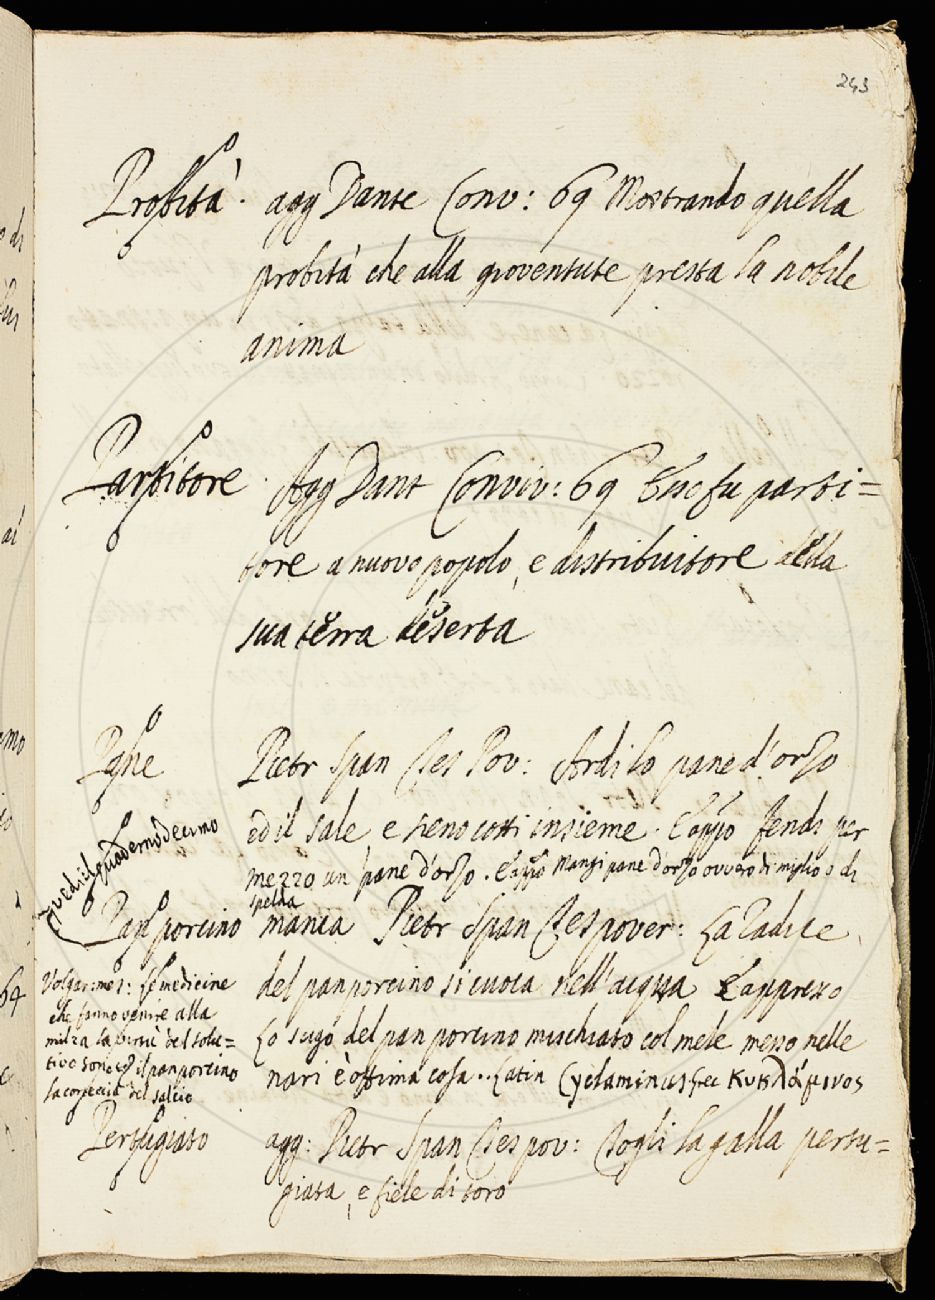 243
Probità · agg Dante Conv: 69 Mostrando quella
probità che alla gioventute presta la nobile
anima
Partitore · Agg Dant Conviv: 69 Che fu parti=
tore a nuovo popolo, e distribuitore della
sua terra deserta
Pane Pietr Span Tes Pov: Ardi lo pane d'orzo
ed il sale e sieno cotti insieme · E appo fendi per
mezzo un pane d'orzo. E appo Mangi pane d'orzo ovvero di miglio o di
spelda
vedi il quaderno decimo
Pan porcino mania Pietr Span Tes pover: La Radice
del pan porcino si cuoca nell'acqua E appresso
Lo sugo del pan porcino mischiato col mele messo nelle
nari è ottima cosa. Latin Cyclaminus Grec Κυκλάμινος
Volgar: mes: Le medicine
che fanno venire alla
milza la virtù del solu=
tivo sono il pan porcino
la corteccia del salcio
Pertugiato agg: Pietr Span Tes pov: Togli la galla pertu=
giata, e fiele di toro